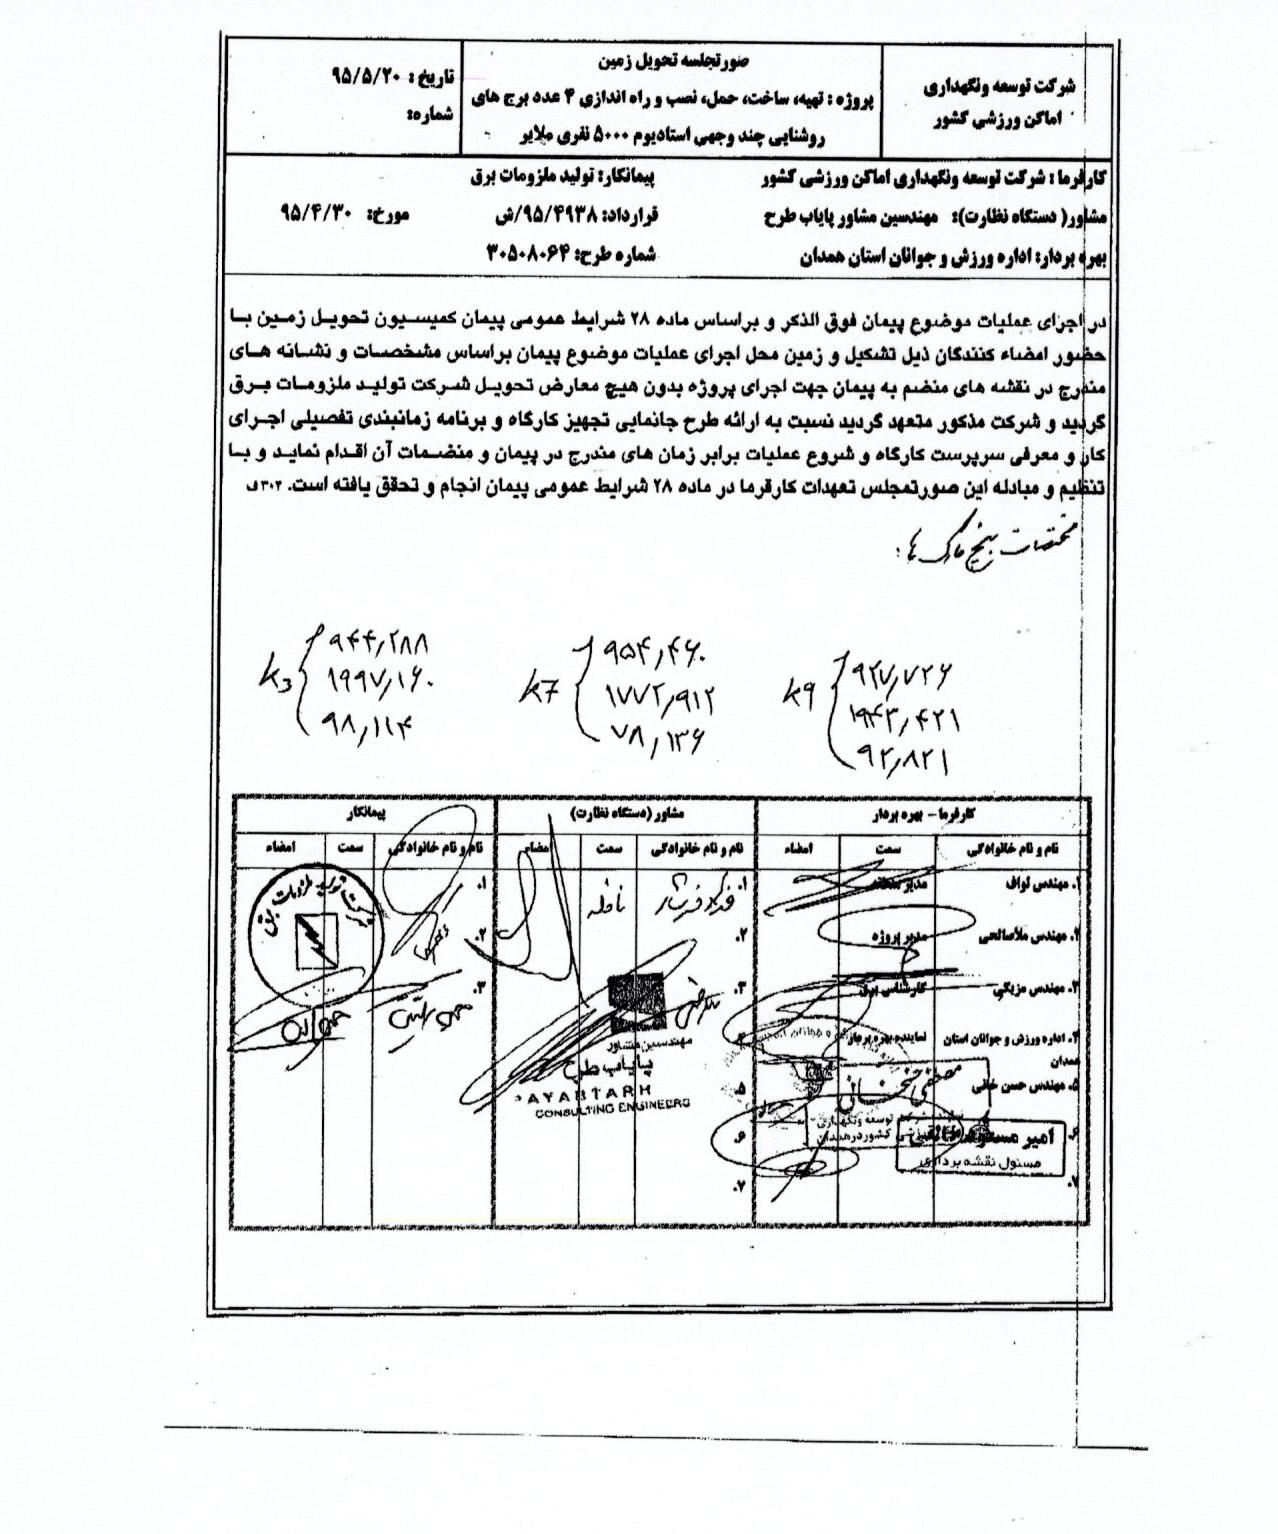 شرکت توسعه ونگهداری
اماکن ورزشی کشور
صورتجلسه تحویل زمین
پروژه : تهیه، ساخت، حمل، نصب و راه اندازی ۴ عدد برج های
روشنایی چند وجهی استادیوم ۵۰۰۰ نفری ملایر
تاریخ : ۹۵/۵/۲۰
شماره:
کارفرما : شرکت توسعه ونگهداری اماکن ورزشی کشور پیمانکار: تولید ملزومات برق
مشاور( دستگاه نظارت): مهندسین مشاور پایاب طرح قرارداد: ۹۵/۴۹۳۸/ش مورخ: ۹۵/۴/۳۰
بهره بردار: اداره ورزش و جوانان استان همدان شماره طرح: ۳۰۵۰۸۰۶۴
در اجرای عملیات موضوع پیمان فوق الذکر و براساس ماده ۲۸ شرایط عمومی پیمان کمیسیون تحویل زمین با
حضور امضاء کنندگان ذیل تشکیل و زمین محل اجرای عملیات موضوع پیمان براساس مشخصات و نشانه های
مندرج در نقشه های منضم به پیمان جهت اجرای پروژه بدون هیچ معارض تحویل شرکت تولید ملزومات برق
گردید و شرکت مذکور متعهد گردید نسبت به ارائه طرح جانمایی تجهیز کارگاه و برنامه زمانبندی تفصیلی اجرای
کار و معرفی سرپرست کارگاه و شروع عملیات برابر زمان های مندرج در پیمان و منضمات آن اقدام نماید و با
تنظیم و مبادله این صورتمجلس تعهدات کارفرما در ماده ۲۸ شرایط عمومی پیمان انجام و تحقق یافته است. ۳۰۲ف
مختصات بنچ مارک ها :
k9
۹۲۷٫۷۲۶
۱۹۴۳٫۴۲۱
۹۲٫۸۲۱
k7
۹۵۴٫۴۶۰
۱۷۷۲٫۹۱۲
۷۸٫۱۳۶
k3
۹۴۴٫۲۸۸
۱۹۹۷٫۱۶۰
۹۸٫۱۱۴
کارفرما - بهره بردار مشاور (دستگاه نظارت) پیمانکار
نام و نام خانوادگی سمت امضاء نام و نام خانوادگی سمت امضاء نام و نام خانوادگی سمت امضاء
۱. مهندس لواف مدیر منطقه
۲. مهندس ملاصالحی مدیر پروژه
۳. مهندس مزیکی کارشناس برق
۴. اداره ورزش و جوانان استان همدان نماینده بهره بردار
۵. مهندس حسن خانی
۶.
۷.
امیر مسعود
مسئول نقشه برداری
توسعه ونگهداری
کشور در همدان
۱.
ناظر
۲.
۳.
۵.
۶.
۷.
مهندسین مشاور
پایاب طرح
PAYABTARH
CONSULTING ENGINEERS
۱.
۲.
۳.
شرکت تولید ملزومات برق